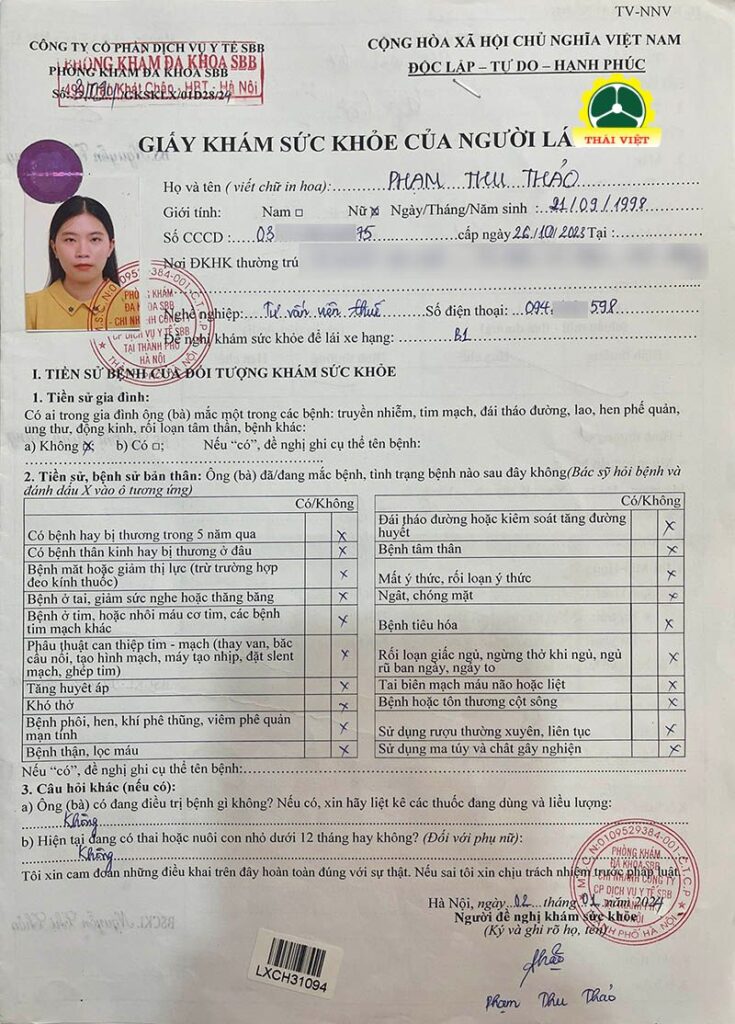 TV-NNV
CÔNG TY CỔ PHẦN DỊCH VỤ Y TẾ SBB
CỘNG HÒA XÃ HỘI CHỦ NGHĨA VIỆT NAM
PHÒNG KHÁM ĐA KHOA SBB
PHÒNG KHÁM ĐA KHOA SBB
ĐỘC LẬP – TỰ DO – HẠNH PHÚC
Số: /GKSKLX/01D28/24
Khát Chân, HBT - Hà Nội
THÁI VIỆT
GIẤY KHÁM SỨC KHỎE CỦA NGƯỜI LÁ
Họ và tên ( viết chữ in hoa): PHẠM THU THẢO
Giới tính: Nam □ Nữ x Ngày/Tháng/Năm sinh : 21/09/1998
Số CCCD : 03 75 cấp ngày 26/10/2023 Tại :
Nơi ĐKHK thường trú
Nghề nghiệp: Tư vấn viên thuế Số điện thoại: 094 598
Đề nghị khám sức khỏe để lái xe hạng: B1
M.S.C.N:0109529384-001-C.T.C.P
PHÒNG KHÁM
ĐA KHOA SBB
- CHI NHÁNH CÔNG TY
CP DỊCH VỤ Y TẾ SBB
TẠI THÀNH PHỐ
HÀ NỘI
I. TIỀN SỬ BỆNH CỦA ĐỐI TƯỢNG KHÁM SỨC KHỎE
1. Tiền sử gia đình:
Có ai trong gia đình ông (bà) mắc một trong các bệnh: truyền nhiễm, tim mạch, đái tháo đường, lao, hen phế quản,
ung thư, động kinh, rối loạn tâm thần, bệnh khác:
a) Không x; b) Có □; Nếu “có”, đề nghị ghi cụ thể tên bệnh:
2. Tiền sử, bệnh sử bản thân: Ông (bà) đã/đang mắc bệnh, tình trạng bệnh nào sau đây không(Bác sỹ hỏi bệnh và
đánh dấu X vào ô tương ứng)
Có/Không
Có bệnh hay bị thương trong 5 năm qua x
Có bệnh thần kinh hay bị thương ở đầu x
Bệnh mắt hoặc giảm thị lực (trừ trường hợp
đeo kính thuốc) x
Bệnh ở tai, giảm sức nghe hoặc thăng bằng x
Bệnh ở tim, hoặc nhồi máu cơ tim, các bệnh
tim mạch khác x
Phẫu thuật can thiệp tim - mạch (thay van, bắc
cầu nối, tạo hình mạch, máy tạo nhịp, đặt slent
mạch, ghép tim) x
Tăng huyết áp x
Khó thở x
Bệnh phổi, hen, khí phế thũng, viêm phế quản
mạn tính x
Bệnh thận, lọc máu x
Có/Không
Đái tháo đường hoặc kiểm soát tăng đường
huyết x
Bệnh tâm thần x
Mất ý thức, rối loạn ý thức x
Ngất, chóng mặt x
Bệnh tiêu hóa x
Rối loạn giấc ngủ, ngừng thở khi ngủ, ngủ
rũ ban ngày, ngáy to x
Tai biến mạch máu não hoặc liệt x
Bệnh hoặc tổn thương cột sống x
Sử dụng rượu thường xuyên, liên tục x
Sử dụng ma túy và chất gây nghiện x
Nếu “có”, đề nghị ghi cụ thể tên bệnh:
3. Câu hỏi khác (nếu có):
a) Ông (bà) có đang điều trị bệnh gì không? Nếu có, xin hãy liệt kê các thuốc đang dùng và liều lượng:
Không
b) Hiện tại đang có thai hoặc nuôi con nhỏ dưới 12 tháng hay không? (Đối với phụ nữ):
Không
Tôi xin cam đoan những điều khai trên đây hoàn toàn đúng với sự thật. Nếu sai tôi xin chịu trách nhiệm trước pháp luật.
Hà Nội, ngày 02 tháng 01 năm 2024
Người đề nghị khám sức khỏe
(Ký và ghi rõ họ, tên)
M.S.C.N:0109529384-001-C.T.C.P
PHÒNG KHÁM
ĐA KHOA SBB
CHI NHÁNH CÔNG TY
CP DỊCH VỤ Y TẾ SBB
THÀNH PHỐ HÀ NỘI
Thảo
Phạm Thu Thảo
LXCH31094